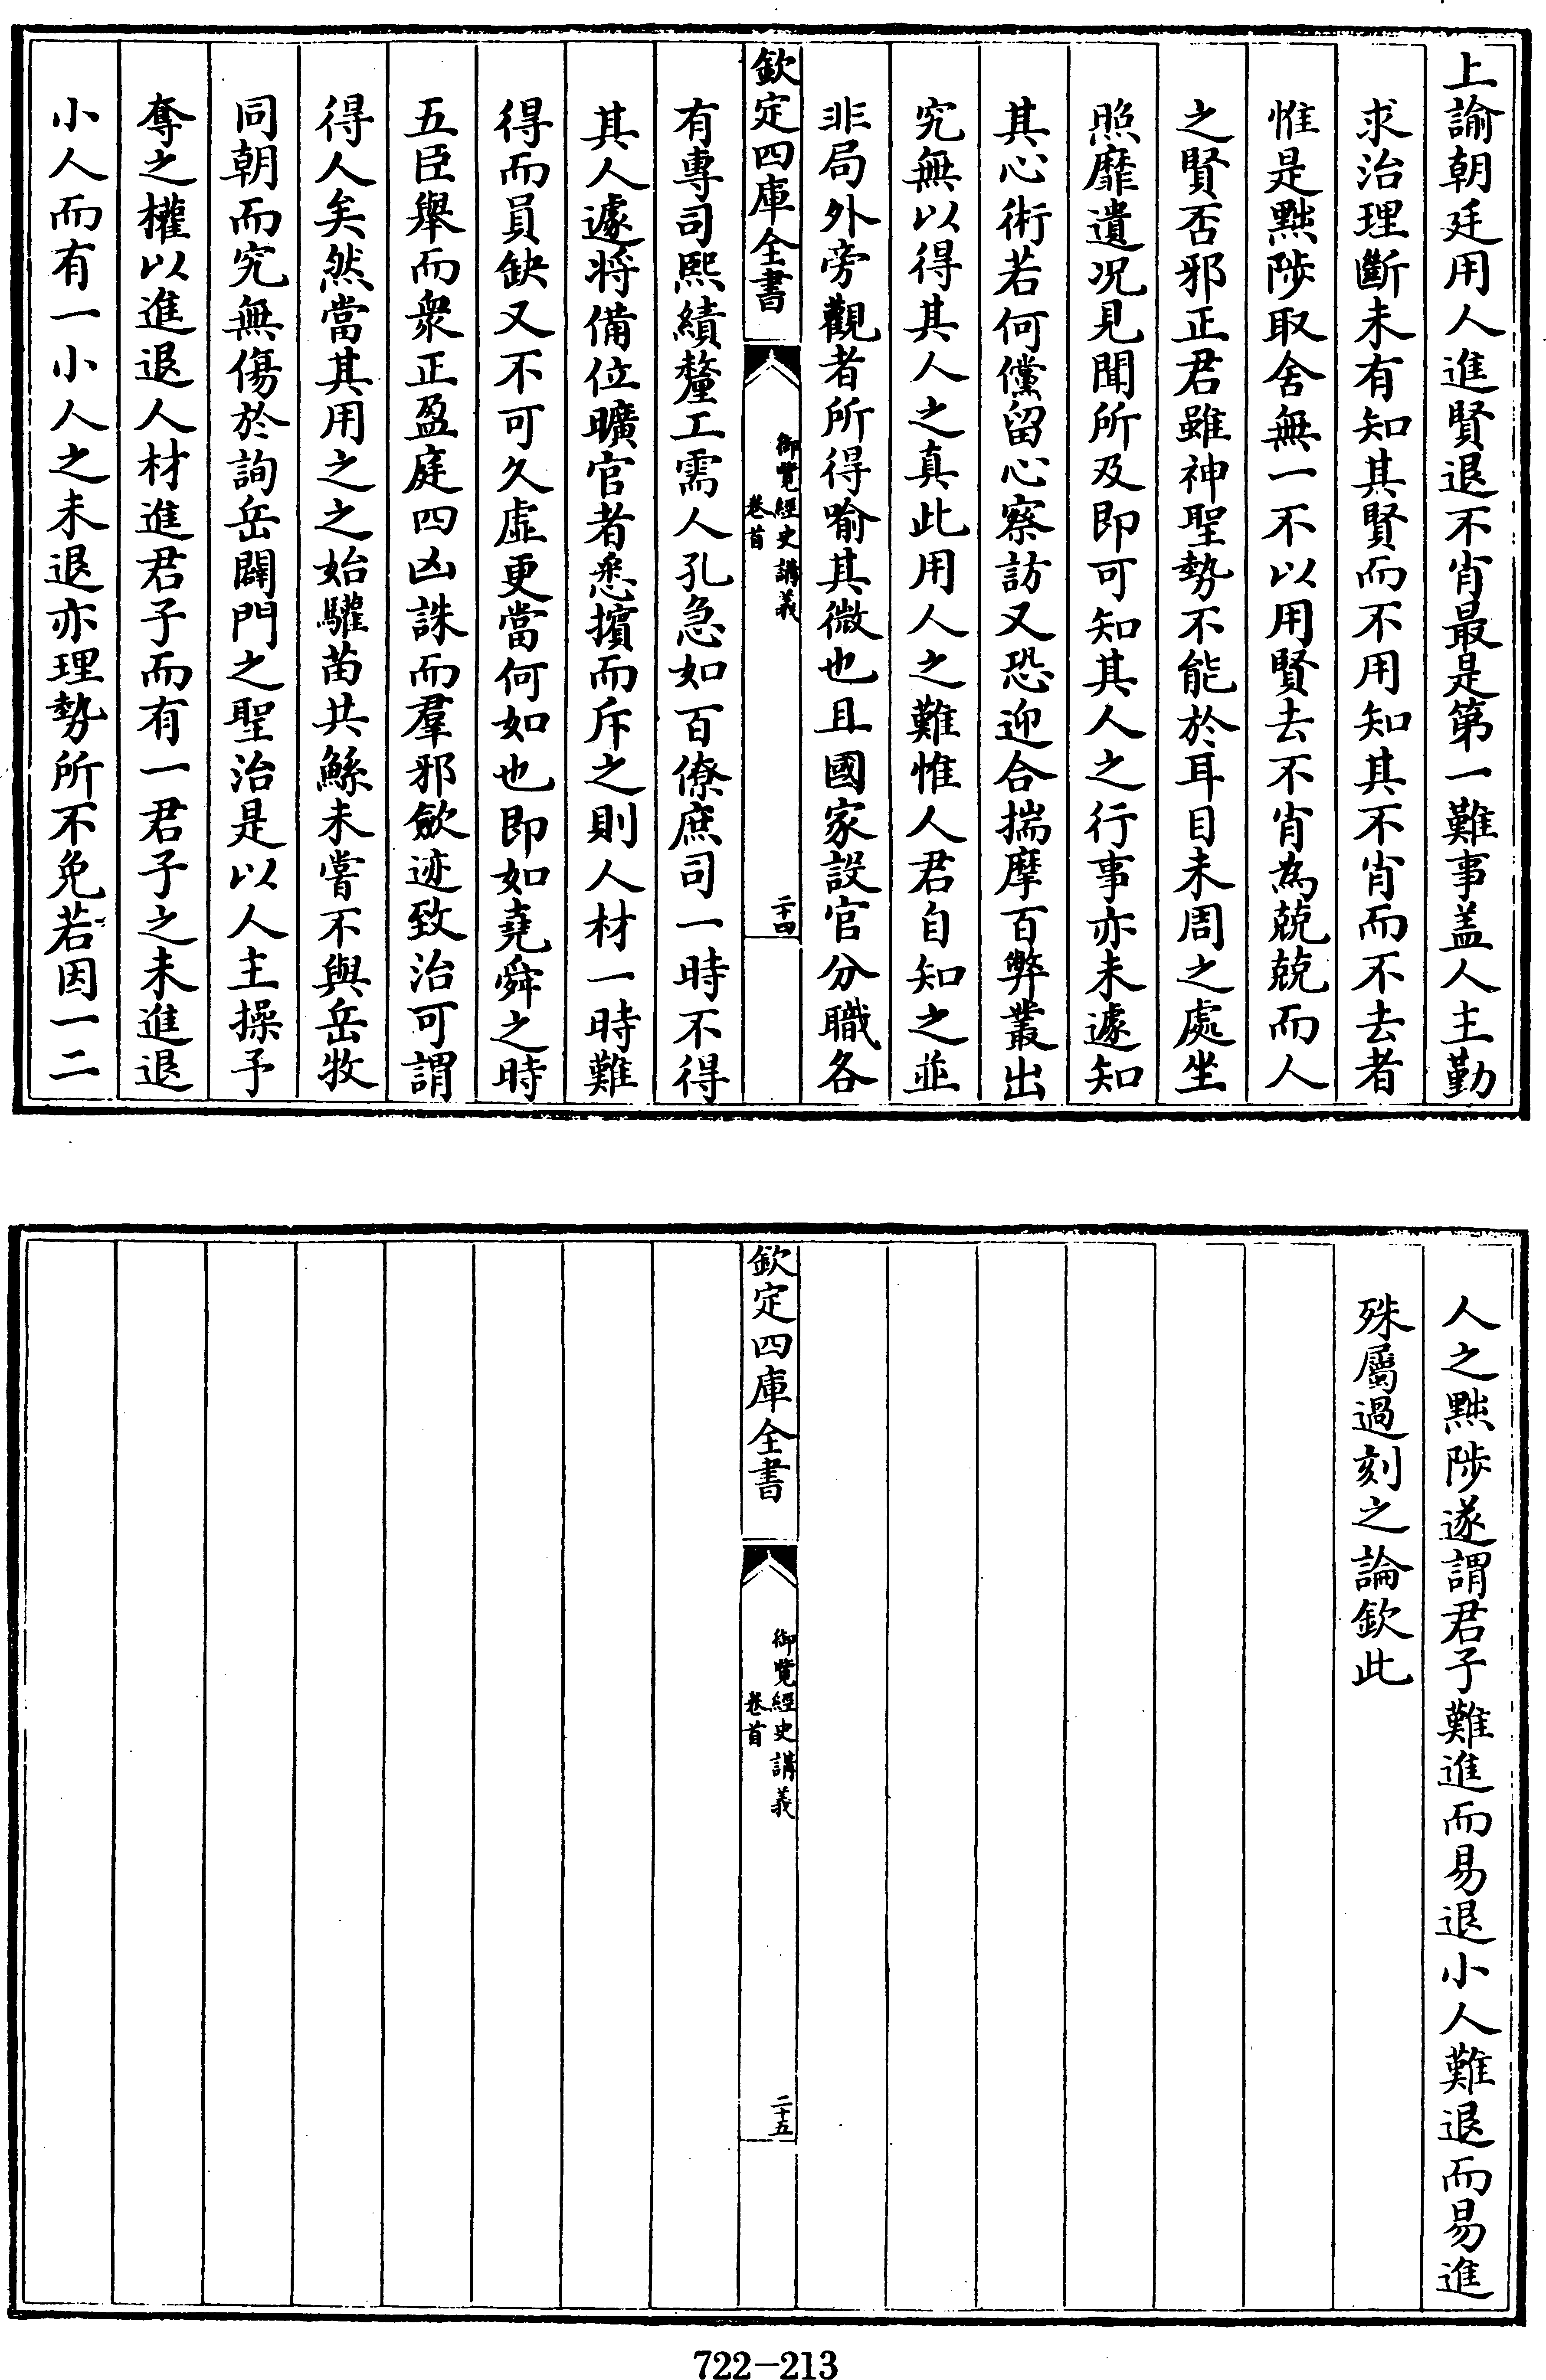 上諭朝廷用人進賢退不肖最是第一難事盖人主勤
求治理斷未有知其賢而不用知其不肖而不去者
惟是黜陟取舍無一不以用賢去不肖為兢兢而人
之賢否邪正君雖神聖勢不能於耳目未周之處坐
照靡遺况見聞所及即可知其人之行事亦未遽知
其心術若何儻留心察訪又恐迎合揣摩百弊叢出
究無以得其人之真此用人之難惟人君自知之並
非局外旁觀者所得喻其微也且國家設官分職各
欽定四庫全書
御覽經史講義
卷首
二十四
有專司熙績釐工需人孔急如百僚庶司一時不得
其人遽将備位曠官者悉擯而斥之則人材一時難
得而員缺又不可久虛更當何如也即如堯舜之時
五臣舉而衆正盈庭四凶誅而羣邪歛迹致治可謂
得人矣然當其用之之始驩苗共鯀未嘗不與岳牧
同朝而究無傷於詢岳闢門之聖治是以人主操予
奪之權以進退人材進君子而有一君子之未進退
小人而有一小人之未退亦理勢所不免若因一二
人之黜陟遂謂君子難進而易退小人難退而易進
殊屬過刻之論欽此
欽定四庫全書
御覽經史講義
卷首
二十五
722-213